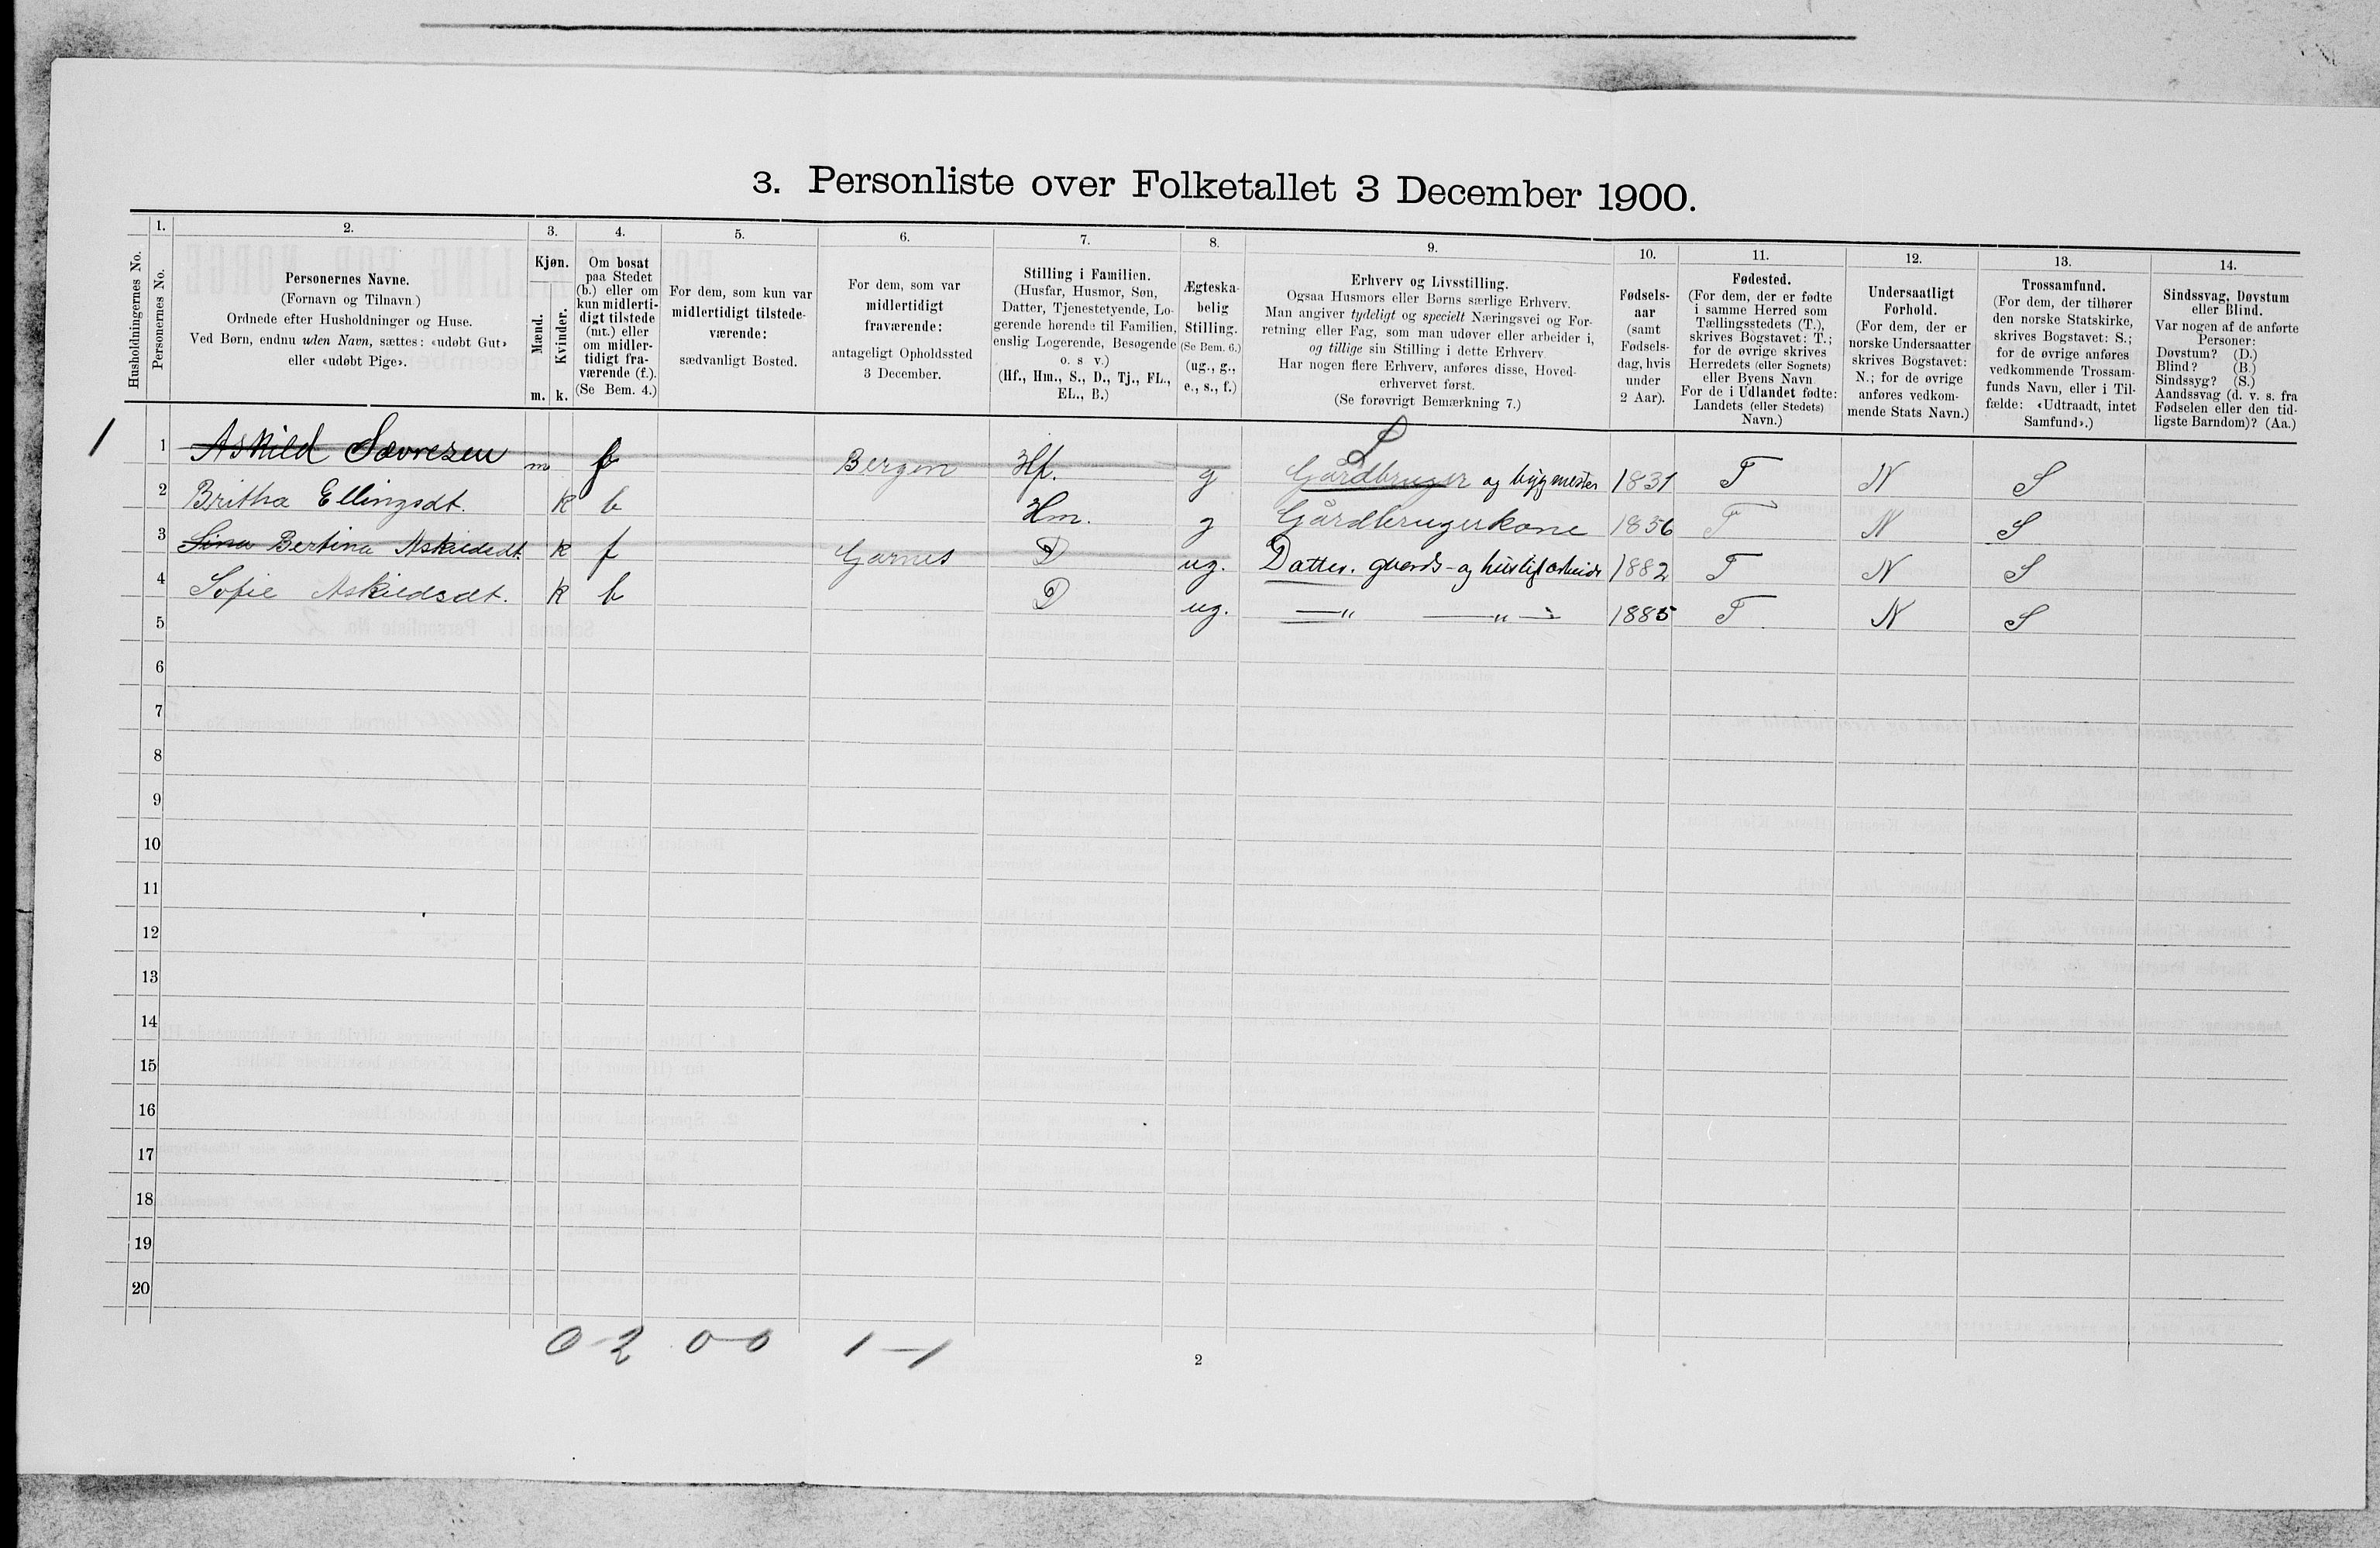 3. Personliste over Folketallet 3 December 1900.
Husholdningernes No.
1.
Personernes No.
2.
Personernes Navne.
(Fornavn og Tilnavn.)
Ordnede efter Husholdninger og Huse.
Ved Børn, endnu uden Navn, sættes: «udøbt Gut»
eller «udøbt Pige».
3.
Kjøn.
Mænd.
Kvinder.
m. k.
4.
Om bosat
paa Stedet
(b.) eller om
kun midlerti-
digt tilstede
(mt.) eller
om midler-
tidigt fra-
værende (f.).
(Se Bem. 4.)
5.
For dem, som kun var
midlertidigt tilstede-
værende:
sædvanligt Bosted.
6.
For dem, som var
midlertidigt
fraværende:
antageligt Opholdssted
3 December.
7.
Stilling i Familien.
(Husfar, Husmor, Søn,
Datter, Tjenestetyende, Lo-
gerende hørende til Familien,
enslig Logerende, Besøgende
o. s v.)
(Hf., Hm., S., D., Tj., FL.,
EL., B.)
8.
Ægteska-
belig
Stilling.
(Se Bem. 6.)
(ug., g.,
e., s., f.)
9.
Erhverv og Livsstilling.
Ogsaa Husmors eller Børns særlige Erhverv.
Man angiver tydeligt og specielt Næringsvei og For-
retning eller Fag, som man udøver eller arbeider i,
og tillige sin Stilling i dette Erhverv
Har nogen flere Erhverv, anføres disse, Hoved-
erhvervet først.
(Se forøvrigt Bemærkning 7.)
10.
Fødsels-
aar
(samt
Fødsels-
dag, hvis
under
2 Aar).
11.
Fødested.
(For dem, der er fødte
i samme Herred som
Tællingsstedets (T.),
skrives Bogstavet: T.;
for de øvrige skrives
Herredets (eller Sognets)
eller Byens Navn
For de i Udlandet fødte:
Landets (eller Stedets)
Navn.)
12.
Undersaatligt
Forhold.
(For dem, der er
norske Undersaatter
skrives Bogstavet:
N.; for de øvrige
anføres vedkom-
mende Stats Navn.)
13.
Trossamfund.
(For dem, der tilhører
den norske Statskirke,
skrives Bogstavet: S.;
for de øvrige anføres
vedkommende Trossam-
funds Navn, eller i Til-
fælde: «Udtraadt, intet
Samfund».)
14.
Sindssvag, Døvstum
eller Blind.
Var nogen af de anførte
Personer:
Døvstum? (D.)
Blind? (B.)
Sindssyg? (S.)
Aandssvag (d. v. s. fra
Fødselen eller den tid-
ligste Barndom)? (Aa.)
1 1 Askild Sævresen m f Bergen Hf. g Gårdbruger og bygmester 1831 T N S
2 Britha Ellingsdt. k b Hm. g Gårdbrugerkone 1856 T N S
3 Sina Bertina Askildsdt. k f Garnes D ug. Datter. gaards- og husligt arbeide 1882 T N S
4 Sofie Askildsdt. k b D ug. —"— —"— 1885 T. N S
5
6
7
8
9
10
11
12
13
14
15
16
17
18
19
20
0-2 0-0 1-1
2